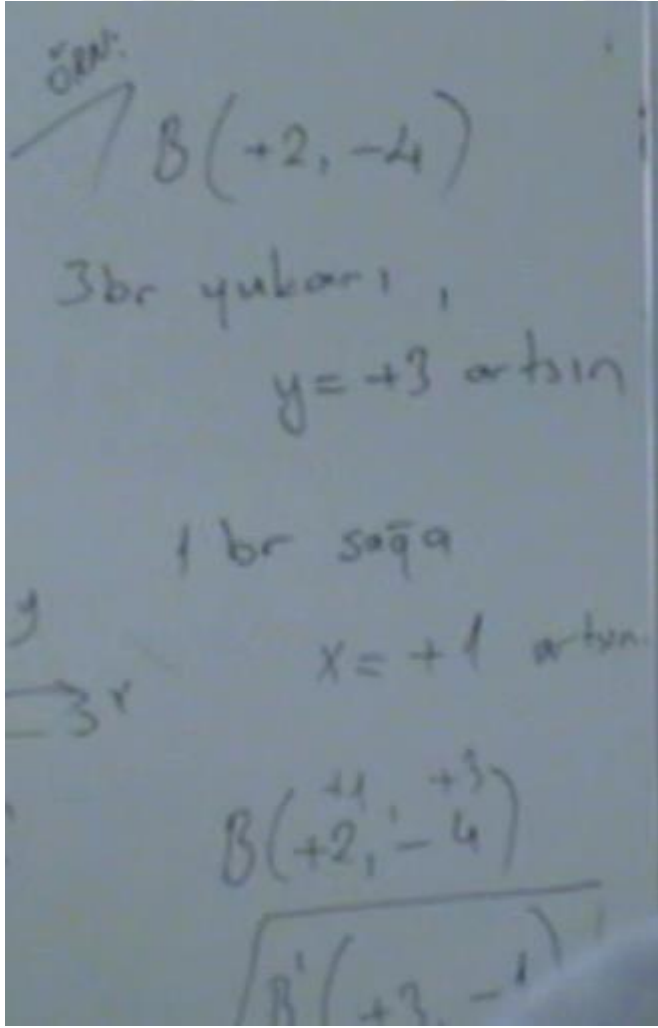 ÖRN:
B(+2, -4)
3br yukarı,
y = +3 artsın
1 br sağa
x = +1 artsın.
y
3
+1, +3
B(+2, -4)
B'(+3, -1)